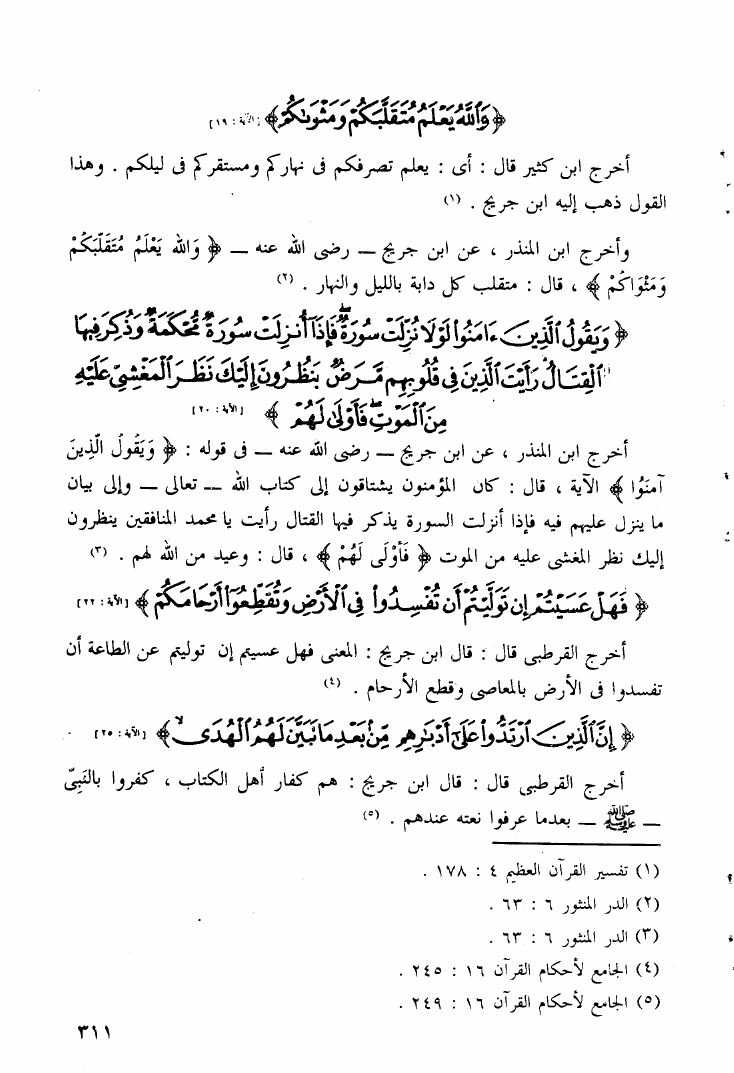 ﴿ وَٱللَّهُ يَعْلَمُ مُتَقَلَّبَكُمْ وَمَثْوَىٰكُمْ ﴾ [الآية : ١٩]
أخرج ابن كثير قال : أى : يعلم تصرفكم فى نهاركم ومستقركم فى ليلكم . وهذا
القول ذهب إليه ابن جريج . (١)
وأخرج ابن المنذر ، عن ابن جريج – رضى الله عنه – ﴿ وَالله يَعْلَمُ مُتَقَلَّبَكُمْ
وَمَثْوَاكُمْ ﴾ ، قال : متقلب كل دابة بالليل والنهار . (٢)
﴿ وَيَقُولُ ٱلَّذِينَ ءَامَنُوا۟ لَوْلَا نُزِّلَتْ سُورَةٌ ۖ فَإِذَآ أُنزِلَتْ سُورَةٌ مُّحْكَمَةٌ وَذُكِرَ فِيهَا
ٱلْقِتَالُ ۙ رَأَيْتَ ٱلَّذِينَ فِى قُلُوبِهِم مَّرَضٌ يَنظُرُونَ إِلَيْكَ نَظَرَ ٱلْمَغْشِىِّ عَلَيْهِ
مِنَ ٱلْمَوْتِ ۖ فَأَوْلَىٰ لَهُمْ ﴾ [الآية : ٢٠]
أخرج ابن المنذر ، عن ابن جريج – رضى الله عنه – فى قوله : ﴿ وَيَقُولُ الَّذِينَ
آمَنُوا ﴾ الآية ، قال : كان المؤمنون يشتاقون إلى كتاب الله – تعالى – وإلى بيان
ما ينزل عليهم فيه فإذا أنزلت السورة يذكر فيها القتال رأيت يا محمد المنافقين ينظرون
إليك نظر المغشى عليه من الموت ﴿ فَأَوْلَى لَهُمْ ﴾ ، قال : وعيد من الله لهم . (٣)
﴿ فَهَلْ عَسَيْتُمْ إِن تَوَلَّيْتُمْ أَن تُفْسِدُوا۟ فِى ٱلْأَرْضِ وَتُقَطِّعُوٓا۟ أَرْحَامَكُمْ ﴾ [الآية : ٢٢]
أخرج القرطبى قال : قال ابن جريج : المعنى فهل عسيتم إن توليتم عن الطاعة أن
تفسدوا فى الأرض بالمعاصى وقطع الأرحام . (٤)
﴿ إِنَّ ٱلَّذِينَ ٱرْتَدُّوا۟ عَلَىٰٓ أَدْبَٰرِهِم مِّنۢ بَعْدِ مَا تَبَيَّنَ لَهُمُ ٱلْهُدَى ۙ ﴾ [الآية : ٢٥]
أخرج القرطبى قال : قال ابن جريج : هم كفار أهل الكتاب ، كفروا بالنَّبِىِّ
– ﷺ – بعدما عرفوا نعته عندهم . (٥)
(١) تفسير القرآن العظيم ٤ : ١٧٨ .
(٢) الدر المنثور ٦ : ٦٣ .
(٣) الدر المنثور ٦ : ٦٣ .
(٤) الجامع لأحكام القرآن ١٦ : ٢٤٥ .
(٥) الجامع لأحكام القرآن ١٦ : ٢٤٩ .
٣١١